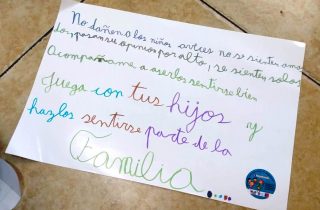 No dañen a los niños aveces no se sienten ama
dos, pasan sus opinios por alto, se sienten solos
Acompañame a aserlos sentirse bien
Juega con tus hijos y
hazlos sentirse parte de la
Familia